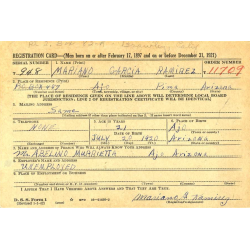 REGISTRATION CARD—(Men born on or after February 17, 1897 and on or before December 31, 1921)
SERIAL NUMBER 1. NAME (Print) ORDER NUMBER
948 MARIANO GARCIA RAMIREZ 11709
2. PLACE OF RESIDENCE (Print)
Ajo Pima Arizona
[THE PLACE OF RESIDENCE GIVEN ON THE LINE ABOVE WILL DETERMINE LOCAL BOARD
JURISDICTION; LINE 2 OF REGISTRATION CERTIFICATE WILL BE IDENTICAL]
3. MAILING ADDRESS
Same
4. TELEPHONE 5. AGE IN YEARS 6. PLACE OF BIRTH
NONE 21 Ajo
DATE OF BIRTH
JULY 1920 Arizona
7. NAME AND ADDRESS OF PERSON WHO WILL ALWAYS KNOW YOUR ADDRESS
Mr. ABELINO MURRIETTA Ajo Arizona
8. EMPLOYER'S NAME AND ADDRESS
UNEMPLOYED
9. PLACE OF EMPLOYMENT OR BUSINESS
I AFFIRM THAT I HAVE VERIFIED ABOVE ANSWERS AND THAT THEY ARE TRUE.
D. S. S. Form 1
Mariano G. Ramirez